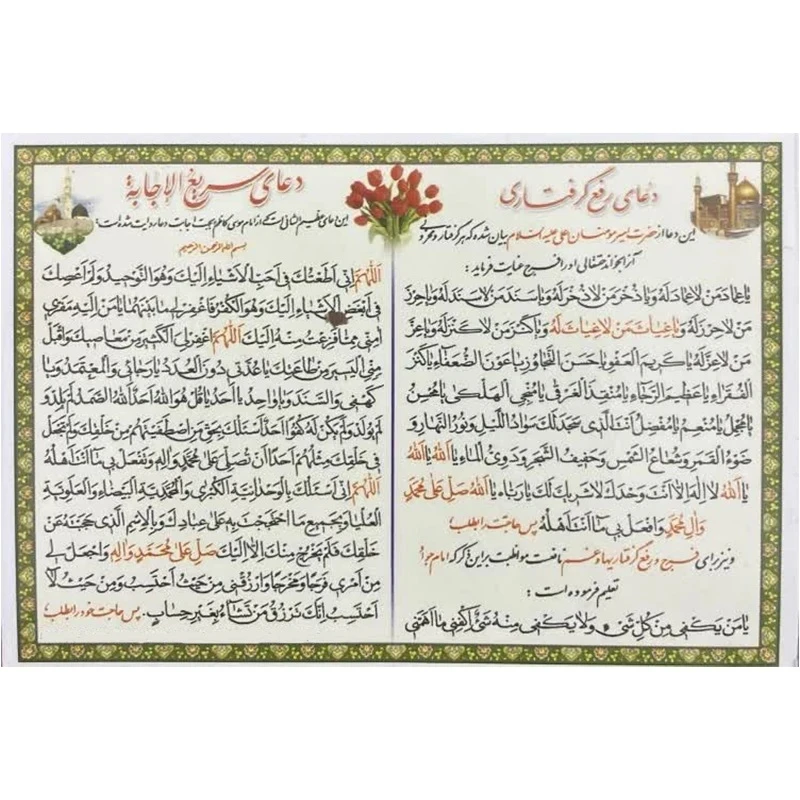 دعای رفع گرفتاری
این دعا از حضرت امیر مومنان علی علیه السلام بیان شده که هر گرفتار و محزونی
آنرا بخواند حقتعالی او را فرج عنایت فرماید:
یا عماد من لا عماد له و یا ذخر من لا ذخر له و یا سند من لا سند له و یا حرز
من لا حرز له و یا غیاث من لا غیاث له و یا کنز من لا کنز له و یا عز
من لا عز له یا کریم العفو یا حسن التجاوز یا عون الضعفاء یا کنز
الفقراء یا عظیم الرجاء یا منقذ الغرقی یا منجی الهلکی یا محسن
یا مجمل یا منعم یا مفضل انت الذی سجد لک سواد اللیل و نور النهار و
ضوء القمر و شعاع الشمس و حفیف الشجر و دوی الماء یا الله یا الله
یا الله لا اله الا انت وحدک لا شریک لک یا رباه یا الله صل علی محمد
و ال محمد و افعل بی ما انت اهله پس حاجت را بطلب
و نیز برای فرج و رفع گرفتاریها و غم مواظبت بر این ذکر که امام جواد
تعلیم فرموده است:
یا من یکفی من کل شیء و لا یکفی منه شیء اکفنی ما اهمنی
دعای سریع الإجابة
این دعای عظیم الشانی است که از امام موسی کاظم بجهت اجابت دعا روایت شده است:
بسم الله الرحمن الرحیم
اللهم انی اطعتک فی احب الاشیاء الیک و هو التوحید و لم اعصک
فی ابغض الاشیاء الیک و هو الکفر فاغفر لی ما بینهما یا من الیه مفری
امنی مما فزعت منه الیک اللهم اغفر لی الکثیر من معاصیک و اقبل
منی الیسیر من طاعتک یا عدتی دون العدد یا رجائی و المعتمد و یا
کهفی و السند و یا واحد یا احد یا قل هو الله احد الله الصمد لم یلد و
لم یولد و لم یکن له کفوا احد اسئلک بحق من اصطفیتهم من خلقک و لم تجعل
فی خلقک مثلهم احدا ان تصلی علی محمد و اله و تفعل بی ما انت اهله
اللهم انی اسئلک بالوحدانیة الکبری و المحمدیة البیضاء و العلویة
العلیا و بجمیع ما احتججت به علی عبادک و بالاسم الذی حجبته عن
خلقک فلم یخرج منک الا الیک صل علی محمد و اله و اجعل لی
من امری فرجا و مخرجا و ارزقنی من حیث احتسب و من حیث لا
احتسب انک ترزق من تشاء بغیر حساب. پس حاجت خود را بطلب